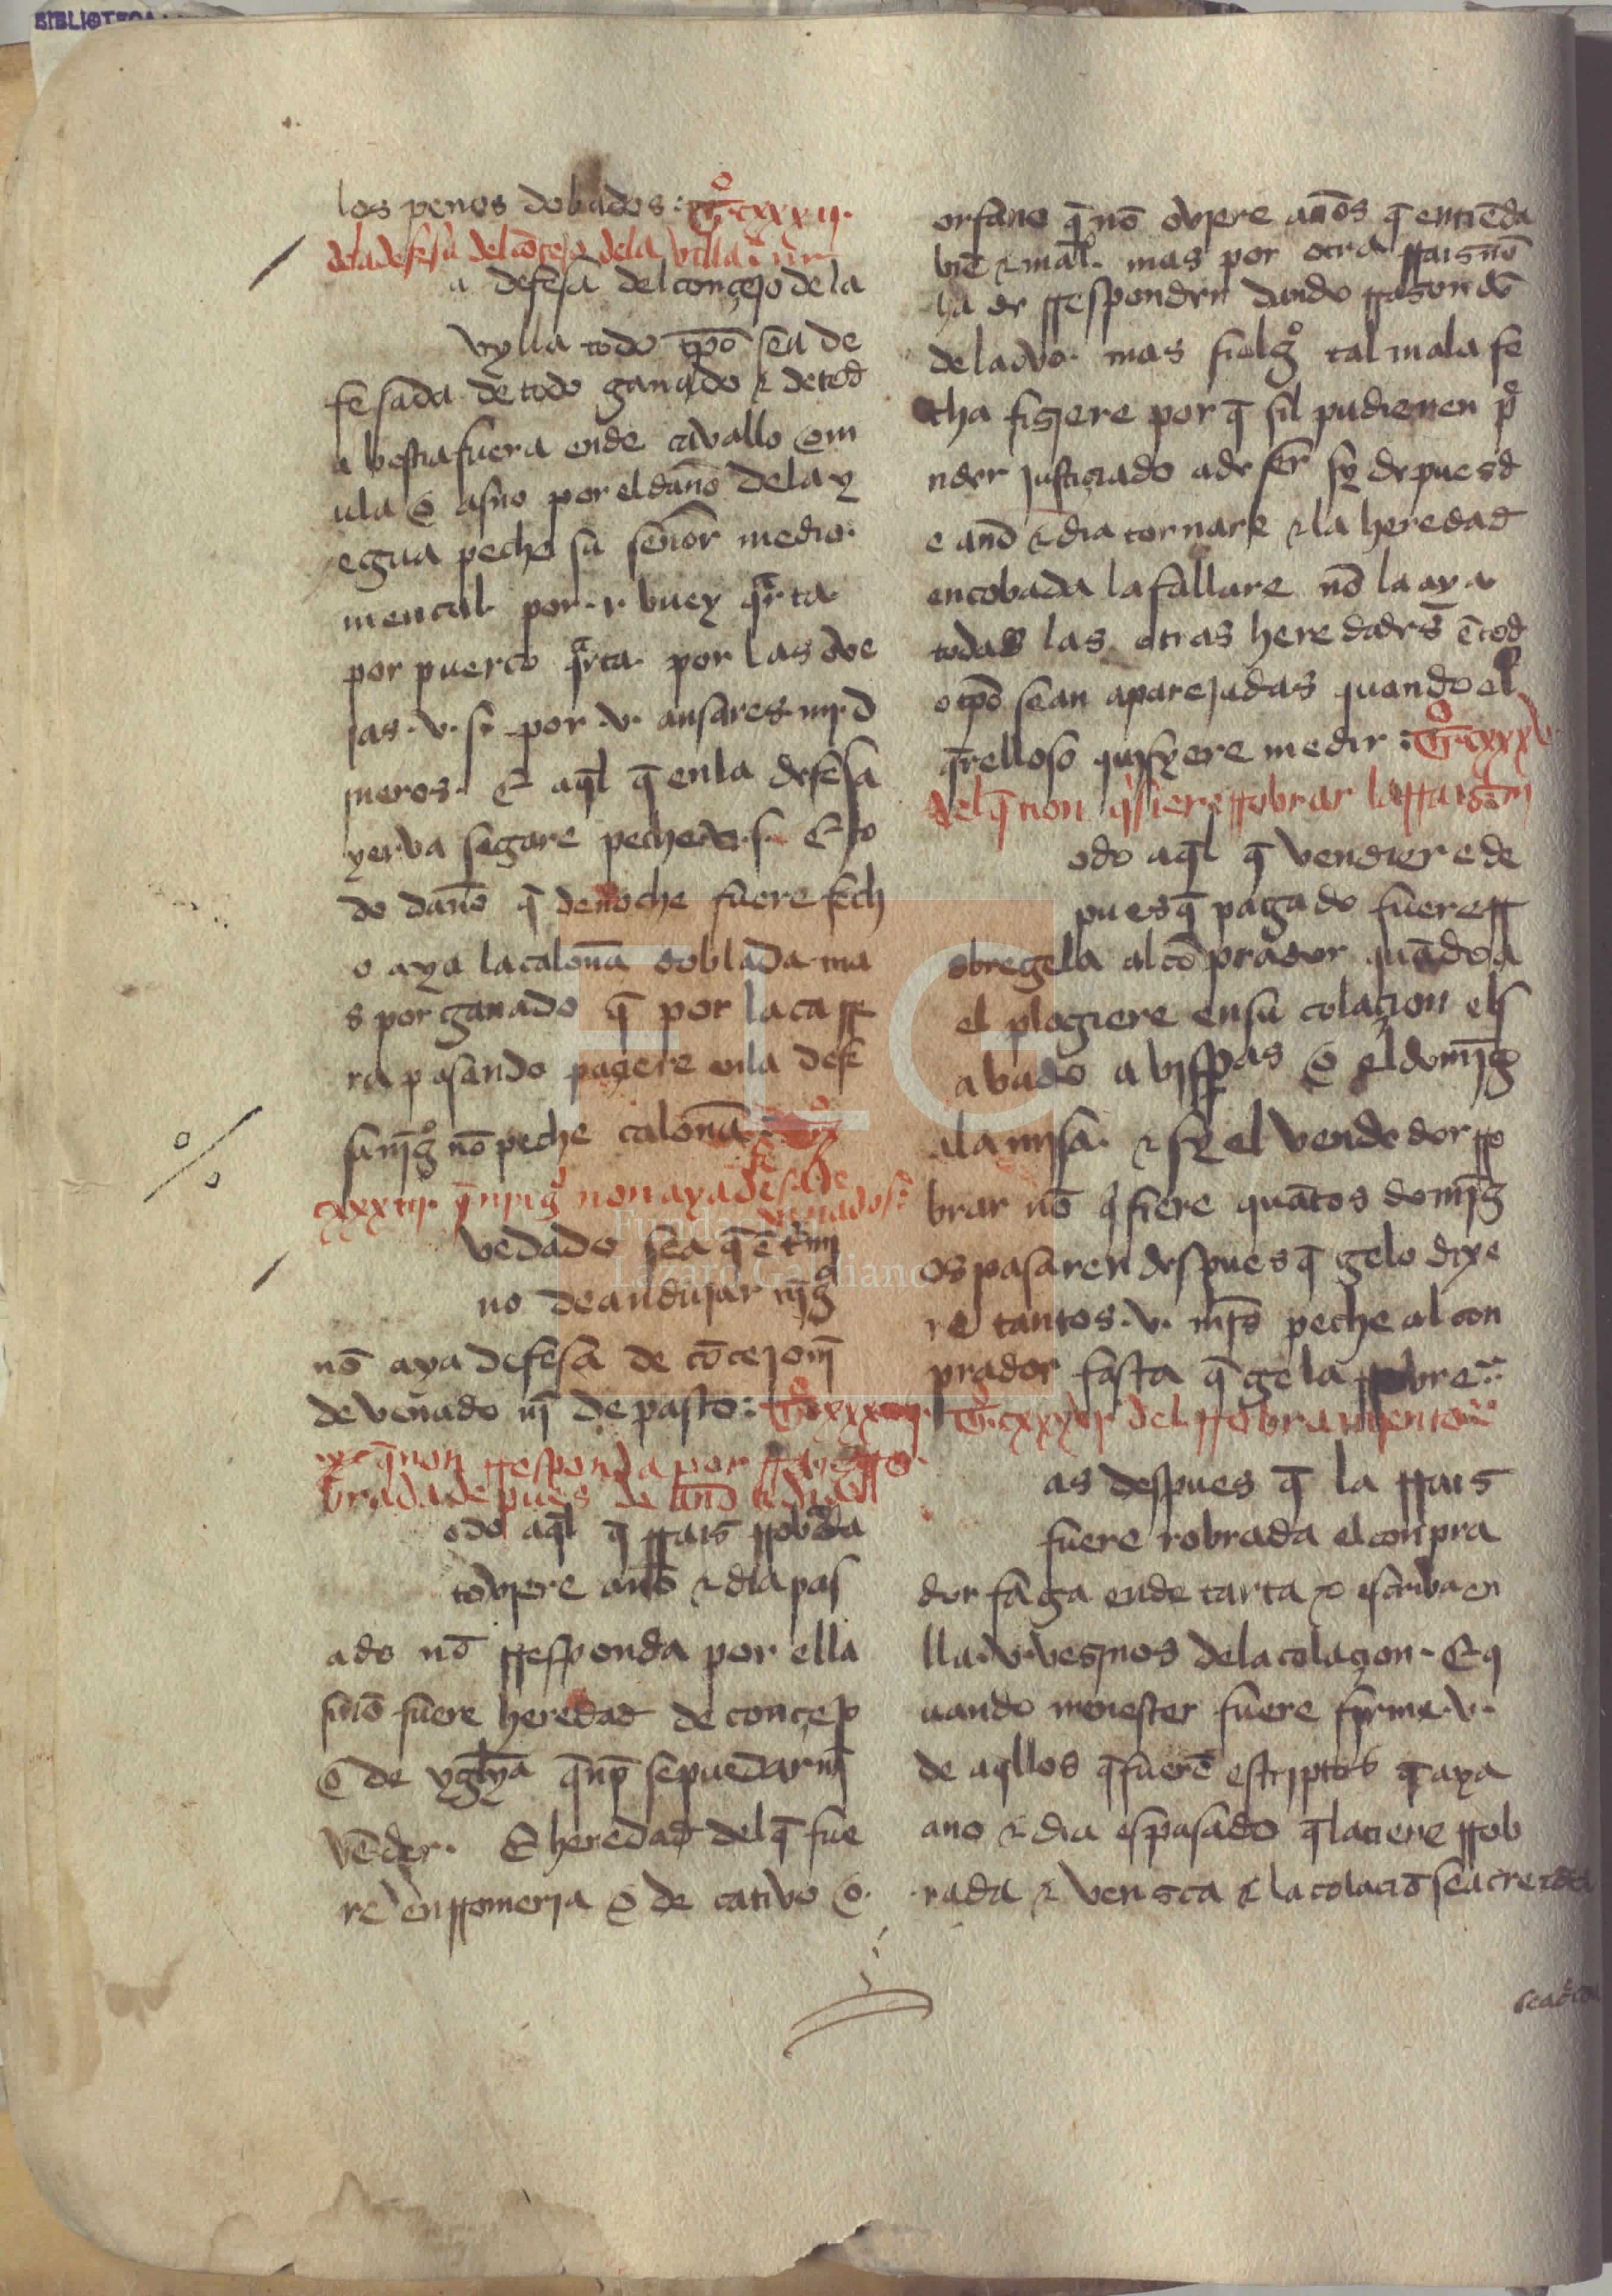 los penos doblados: Tº. cxxxii.
dela defesa del cōcejo dela villa
a defesa del conçejo de la
vylla todo tpō sea de
fesada de todo ganado & detod
a bestia fuera ende cavallo o m
ula o asno por el danō dela y
egua peche su senōr medio
mencal. por .i. buey qrta.
por puerco qrta. por las ove
jas .v. s. por .v. ansares iij d
ineros. E aql̄ q̄ en la defesa
yerva segare peche .v. s. E to
do danō q̄ de noche fuere fech
o aya la calonā doblada ma
s por ganado q̄ por la carre
ra pasando paçere en la defe
sa nīgº nō peche calonā
cxxxiij. q̄ nīgº non aya defesa de
venados
vedado sea q̄ ē termi
no de andujar nīg
nō aya defesa de cōcejo nī
de venado nī de pasto: Tº cxxxiiij.
q̄ non rresponda por rrayz rro
brada depues de anō & dia
odo aql̄ q̄ rrais rrobrada
toviere anō & dia pas
ado nō rresponda por ella
sinō fuere heredad de conçejo
o de yglya q̄ nō se pueda nī
vēder. E heredad del q̄ fue
re en rromeria o de cativo o
orfano q̄ nō oviere anōs q̄ entiēda
biē & mal. mas por otra rrais nō
ha de rresponder dando rrason dō
de la ovo. mas si alg̊ tal mala fe
cha fiziere por q̄ sil pudieren p
nder justiçiado a de ser sy depues d
e anō & dia tornare & la heredad
encobada la fallare nō la aya
todas las otras heredades ētod
o tpō sean aparejadas quando el
q̄relloso quisyere medir: Tº. cxxxv
del q̄ non q̇siere rrobrar la rraison
odo aql̄ q̄ vendiere de
pues q̄ pagado fuere rr
obregela al cōprador quādo a
el plogiere en su colaçion el s
abado a bisperas o el domīg
a la misa. & sy el vendedor rro
brar nō q̇siere quātos domīg
os pasaren despues q̄ gelo dixe
re tantos .v. mrs̄ peche al con
prador fasta q̄ ge la rrobre
Tº. cxxxvi del rrobramiento
as despues q̄ la rrais
fuere robrada el conpra
dor faga ende carta & escriva en
lla .v. vesinos de la colaçon. E q
uando menester fuere firme .v.
de aqllos q̄ fuerē escriptos q̄ aya
ano & dia es pasado q̄ la tiene rrob
rada & vensca & la colaciō sea creida